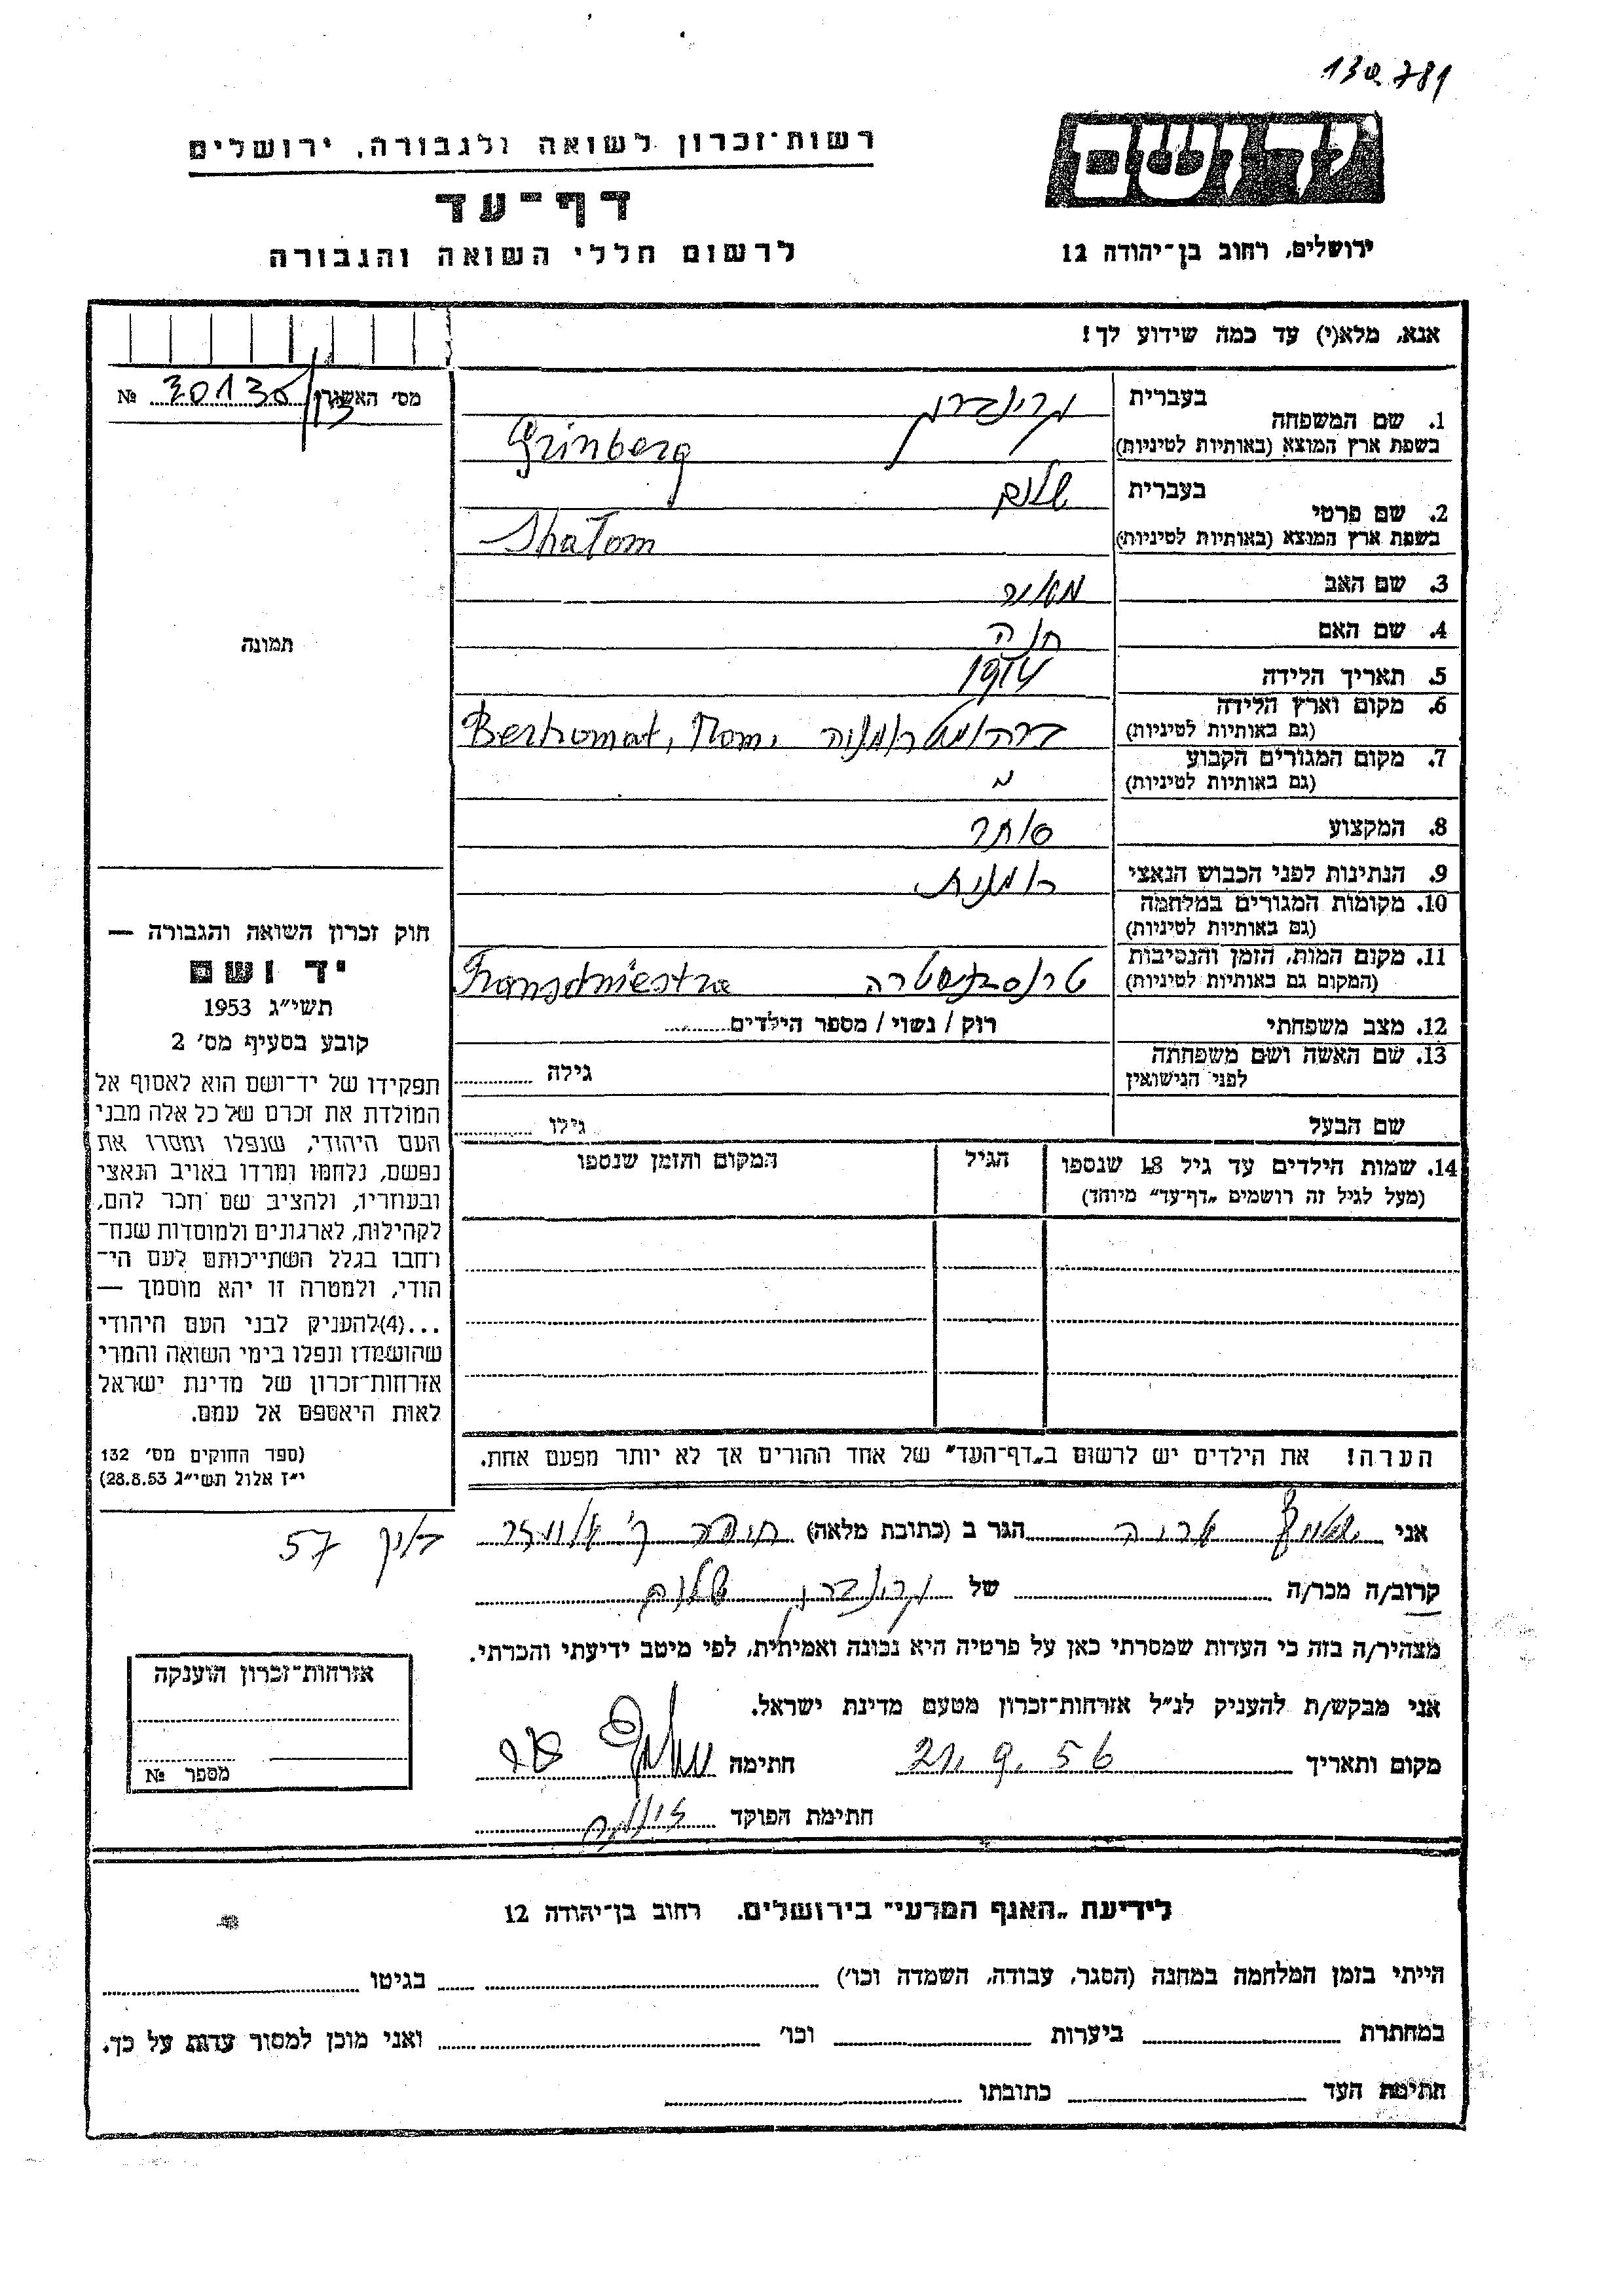 130781
יד ושם
ירושלים, רחוב בן־יהודה 12
רשות־זכרון לשואה ולגבורה, ירושלים
דף־עד
לרשום חללי השואה והגבורה
אנא, מלא(י) עד כמה שידוע לך!
מס' האשורון № 30130
1. שם המשפחה בעברית גרינברג
בשפת ארץ המוצא (באותיות לטיניות) Grinberg
2. שם פרטי בעברית שלום
בשפת ארץ המוצא (באותיות לטיניות) Shalom
3. שם האב מאיר
4. שם האם חנה
5. תאריך הלידה 1914
6. מקום וארץ הלידה
(גם באותיות לטיניות) ברהומט רומניה Berhomat, Rom.
7. מקום המגורים הקבוע
(גם באותיות לטיניות)
8. המקצוע סוחר
9. הנתינות לפני הכבוש הנאצי רומנית
10. מקומות המגורים במלחמה
(גם באותיות לטיניות)
11. מקום המות, הזמן והנסיבות
(המקום גם באותיות לטיניות) טרנסדניסטרה Transdniestra
12. מצב משפחתי רוק / נשוי / מספר הילדים
13. שם האשה ושם משפחתה
לפני הנישואין גילה
שם הבעל גילו
14. שמות הילדים עד גיל 18 שנספו הגיל המקום והזמן שנספו
(מעל לגיל זה רושמים „דף־עד" מיוחד)
הערה! את הילדים יש לרשום ב„דף־העד" של אחד ההורים אך לא יותר מפעם אחת.
תמונה
חוק זכרון השואה והגבורה —
יד ושם
תשי״ג 1953
קובע בסעיף מס' 2
תפקידו של יד־ושם הוא לאסוף אל
המולדת את זכרם של כל אלה מבני
העם היהודי, שנפלו ומסרו את
נפשם, נלחמו ומרדו באויב הנאצי
ובעוזריו, ולהציב שם וזכר להם,
לקהילות, לארגונים ולמוסדות שנח־
רחבו בגלל השתייכותם לעם הי־
הודי, ולמטרה זו יהא מוסמך —
...(4)להעניק לבני העם היהודי
שהושמדו ונפלו בימי השואה והמרי
אזרחות־זכרון של מדינת ישראל
לאות היאספם אל עמם.
(ספר החוקים מס' 132
י״ז אלול תשי״ג 28.8.53)
אני הגר ב (כתובת מלאה) חיפה
57
קרוב/ה מכר/ה של גרינברג שלום
מצהיר/ה בזה כי העדות שמסרתי כאן על פרטיה היא נכונה ואמיתית, לפי מיטב ידיעתי והכרתי.
אני מבקש/ת להעניק לנ״ל אזרחות־זכרון מטעם מדינת ישראל.
מקום ותאריך 21. 9. 56 חתימה
חתימת הפוקד
אזרחות־זכרון הוענקה
מספר №
לידיעת „האגף המדעי" בירושלים. רחוב בן־יהודה 12
הייתי בזמן המלחמה במחנה (הסגר, עבודה, השמדה וכו') בגיטו
במחתרת ביערות וכו' ואני מוכן למסור עדות על כך.
חתימת העד כתובתו